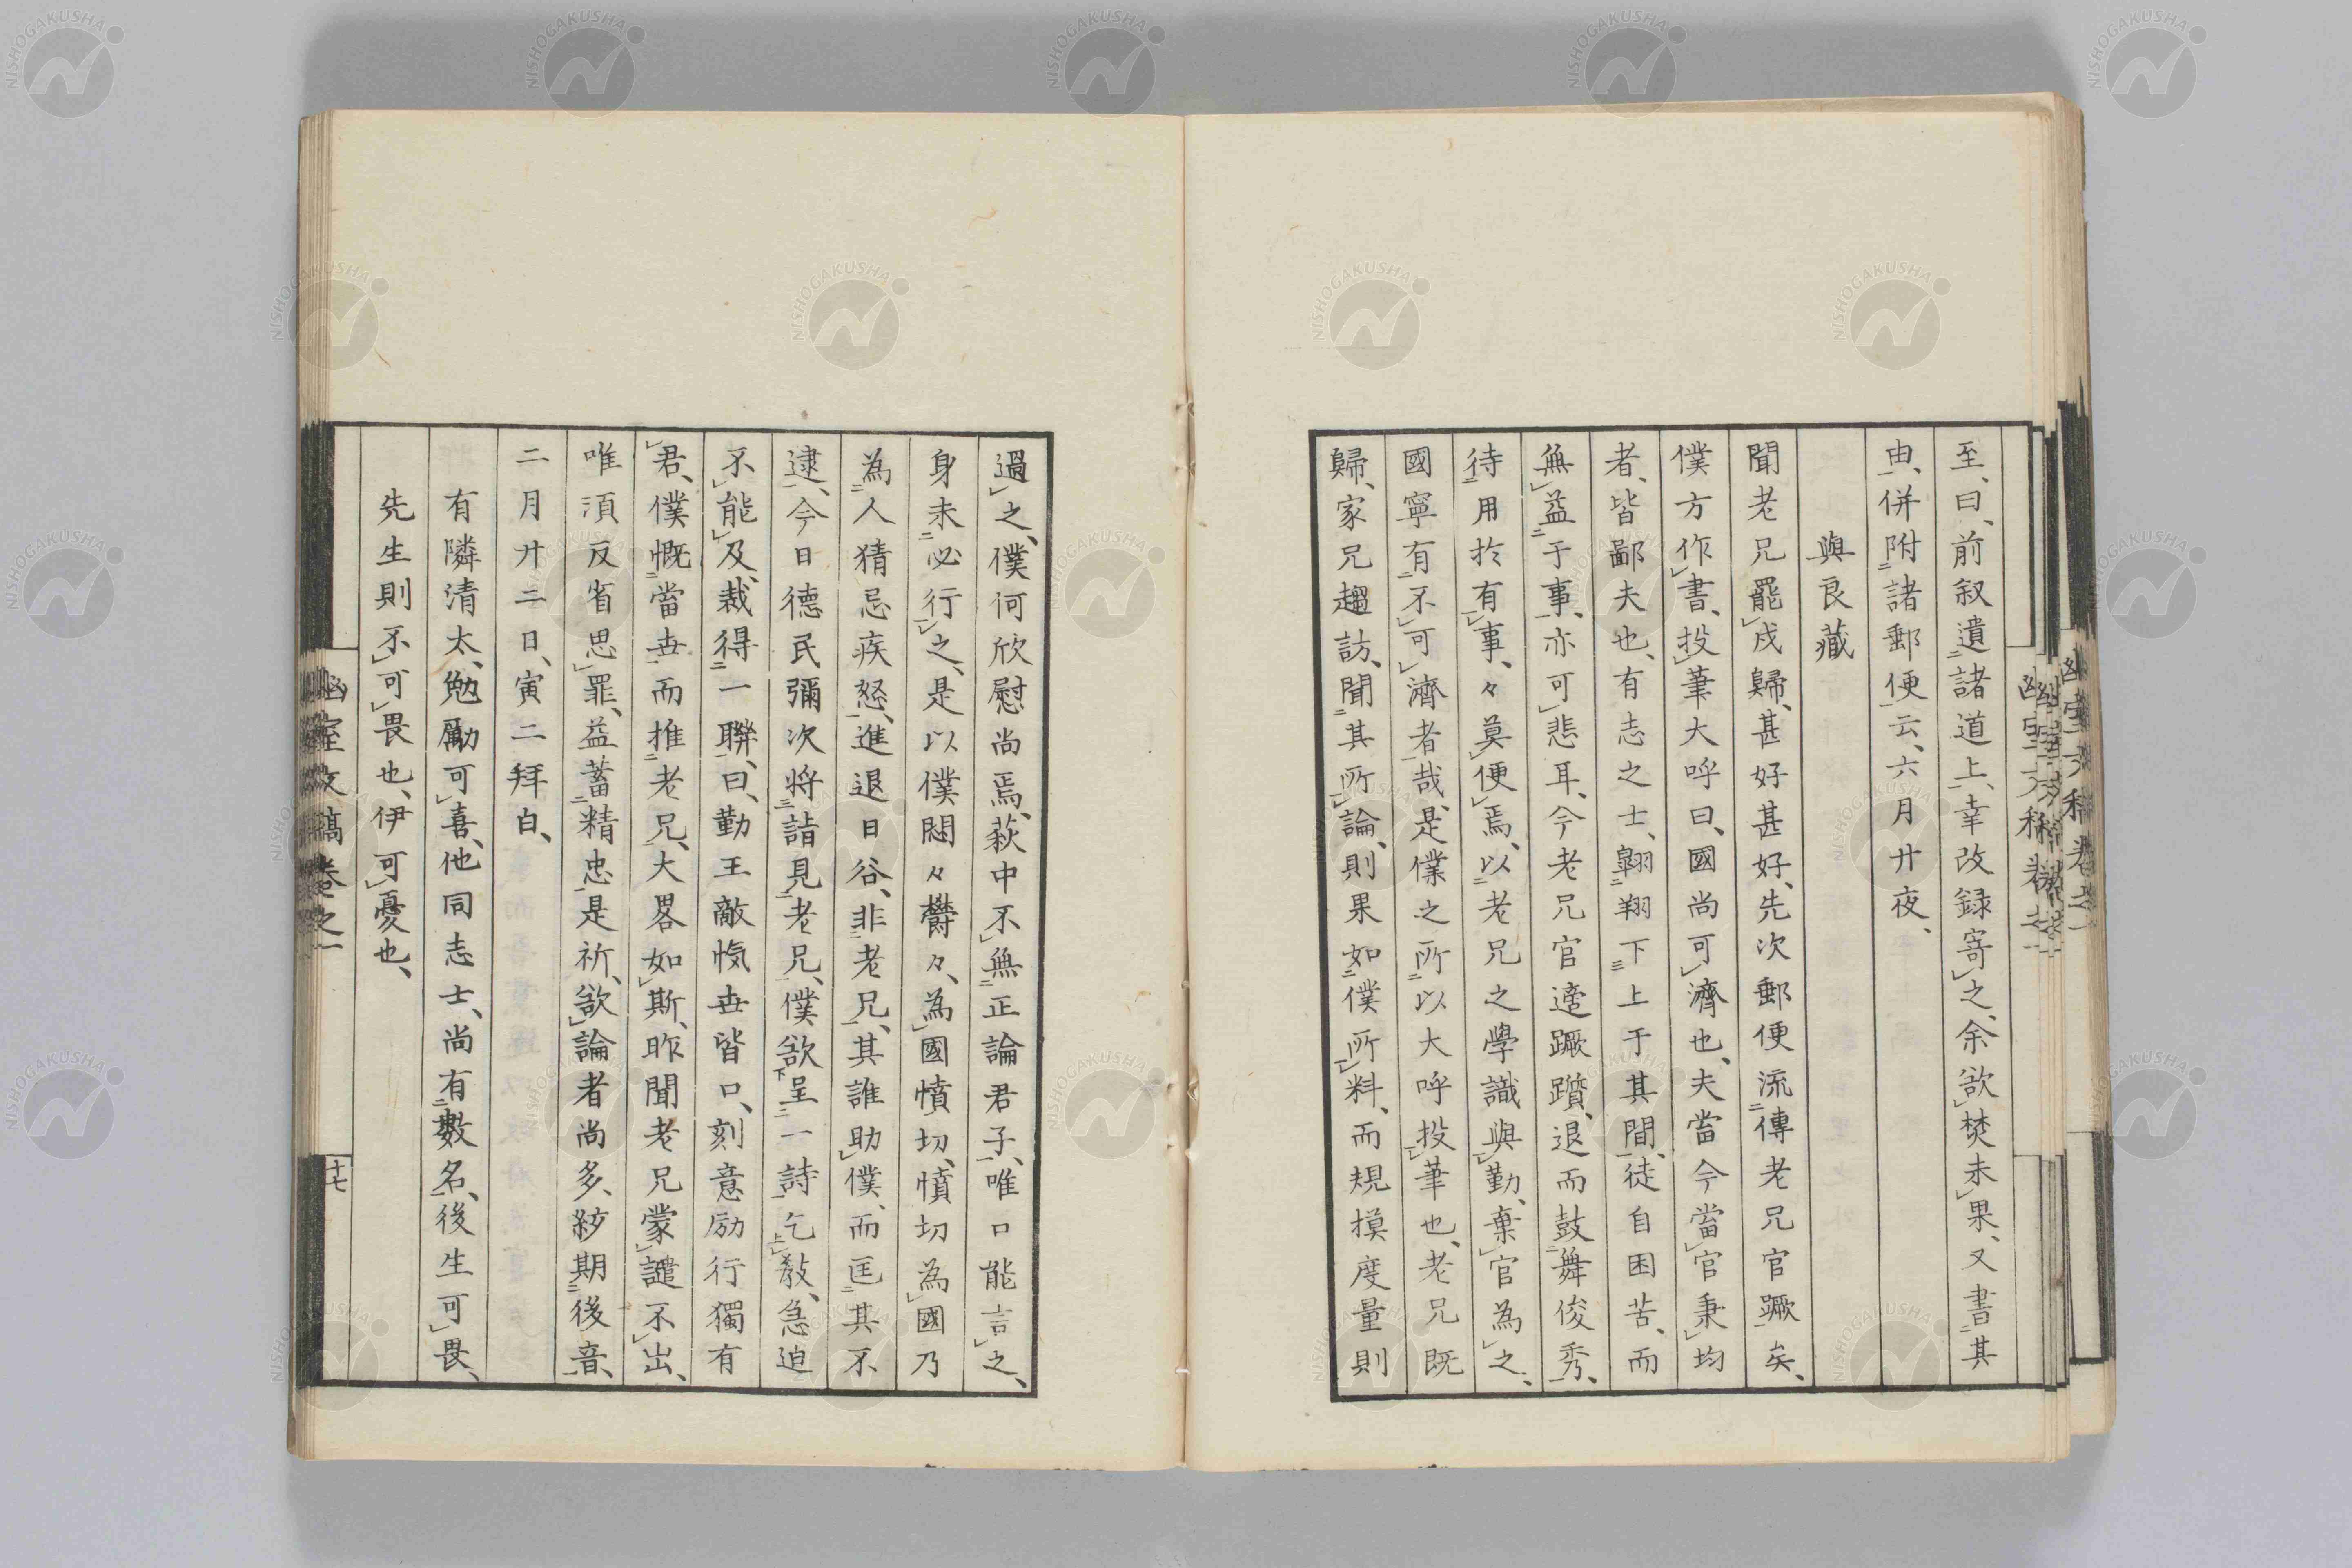 至、曰、前叙遺諸道上、幸改録寄之、余欲焚未果、又書其
由、併附諸郵便云、六月廿夜、
與良藏
聞老兄罷戍歸、甚好甚好、先次郵便流傳老兄官蹶矣、
僕方作書、投筆大呼曰、國尚可濟也、夫當今當官秉均
者、皆鄙夫也、有志之士、翺翔下上于其間、徒自困苦、而
無益于事、亦可悲耳、今老兄官遭蹶躓、退而鼓舞俊秀、
待用於有事、々莫便焉、以老兄之學識與勤、棄官為之、
國寧有不可濟者哉、是僕之所以大呼投筆也、老兄既
歸、家兄趨訪、聞其所論、則果如僕所料、而規摸度量則
過之、僕何欣慰尚焉、萩中不無正論君子、唯口能言之、
身未必行之、是以僕悶々欝々、為國憤切、憤切為國乃
為人猜忌疾怒、進退日谷、非老兄、其誰助僕、而匡其不
逮、今日德民彌次將詣見老兄、僕欲呈一詩乞敎、急迫
不能及、裁得一聯、曰、勤王敵愾世皆口、刻意励行獨有
君、僕慨當世而推老兄、大畧如斯、昨聞老兄蒙譴不出、
唯須反省思罪、益蓄精忠是祈、欲論者尚多、統期後音、
二月廿二日、寅二拜白、
有隣清太、勉勵可喜、他同志士、尚有數名、後生可畏、
先生則不可畏也、伊可憂也、
幽室文稿卷之一
十七